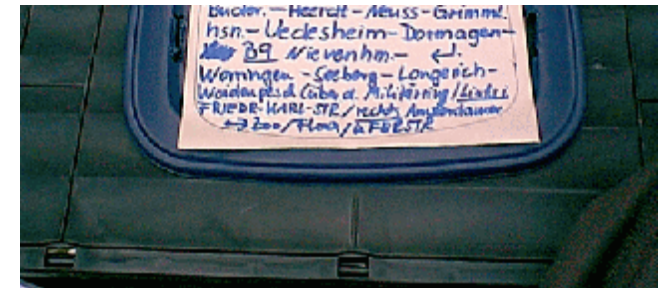 Büder. - Heerdt - Neuss - Grimml.
hsn. - Ueclesheim - Dormagen -
B9 Nievenhm. - ↵.
Worringen - Seeberg - Longerich -
Weidenpesch (über d. Militärring / links
FRIEDR-KARL-STR / rechts Amsterdamer
↔ Zoo / Flora /